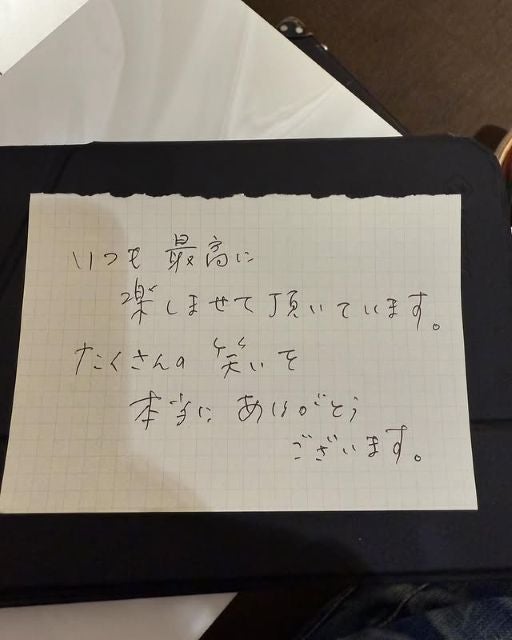 いつも 最高に
楽しませて頂いています。
たくさんの 笑いを
本当に ありがとう
ございます。